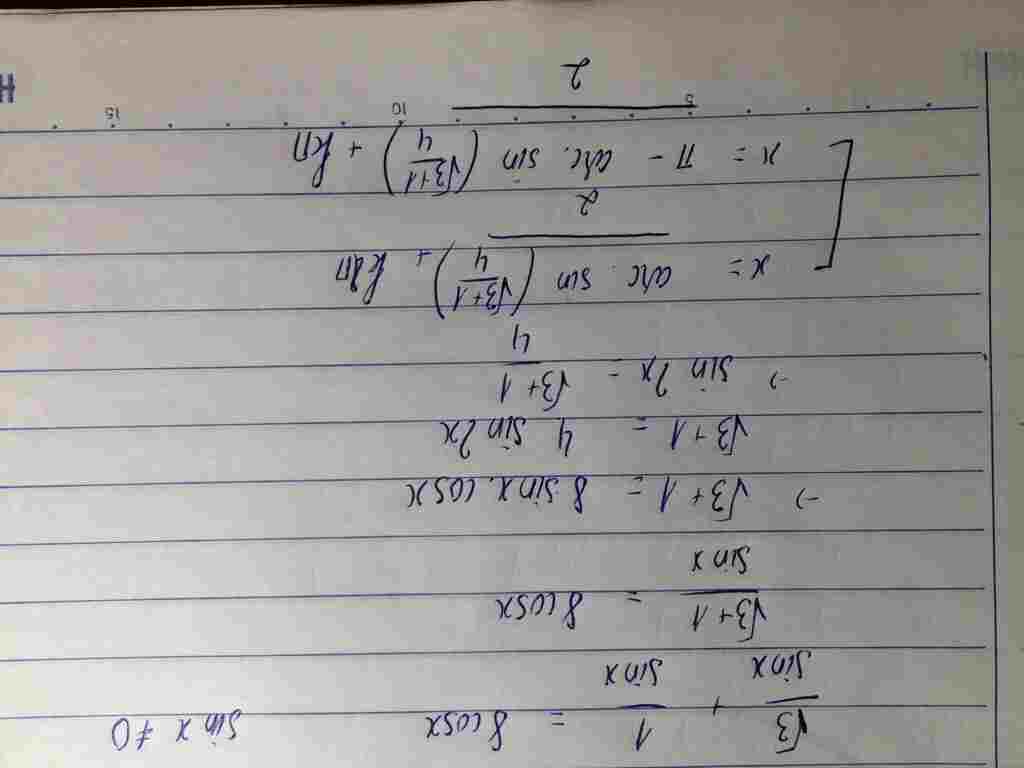 √3/sin x + 1/sin x = 8 cosx   sin x ≠ 0
(√3 + 1)/sin x = 8 cosx
→ √3 + 1 = 8 sin x . cos x
√3 + 1 = 4 sin 2x
→ sin 2x = (√3 + 1)/4
[ x = arc. sin ((√3 + 1)/4)/2 + k2π
x = π - arc. sin ((√3 + 1)/4)/2 + kπ
5 10 15
H